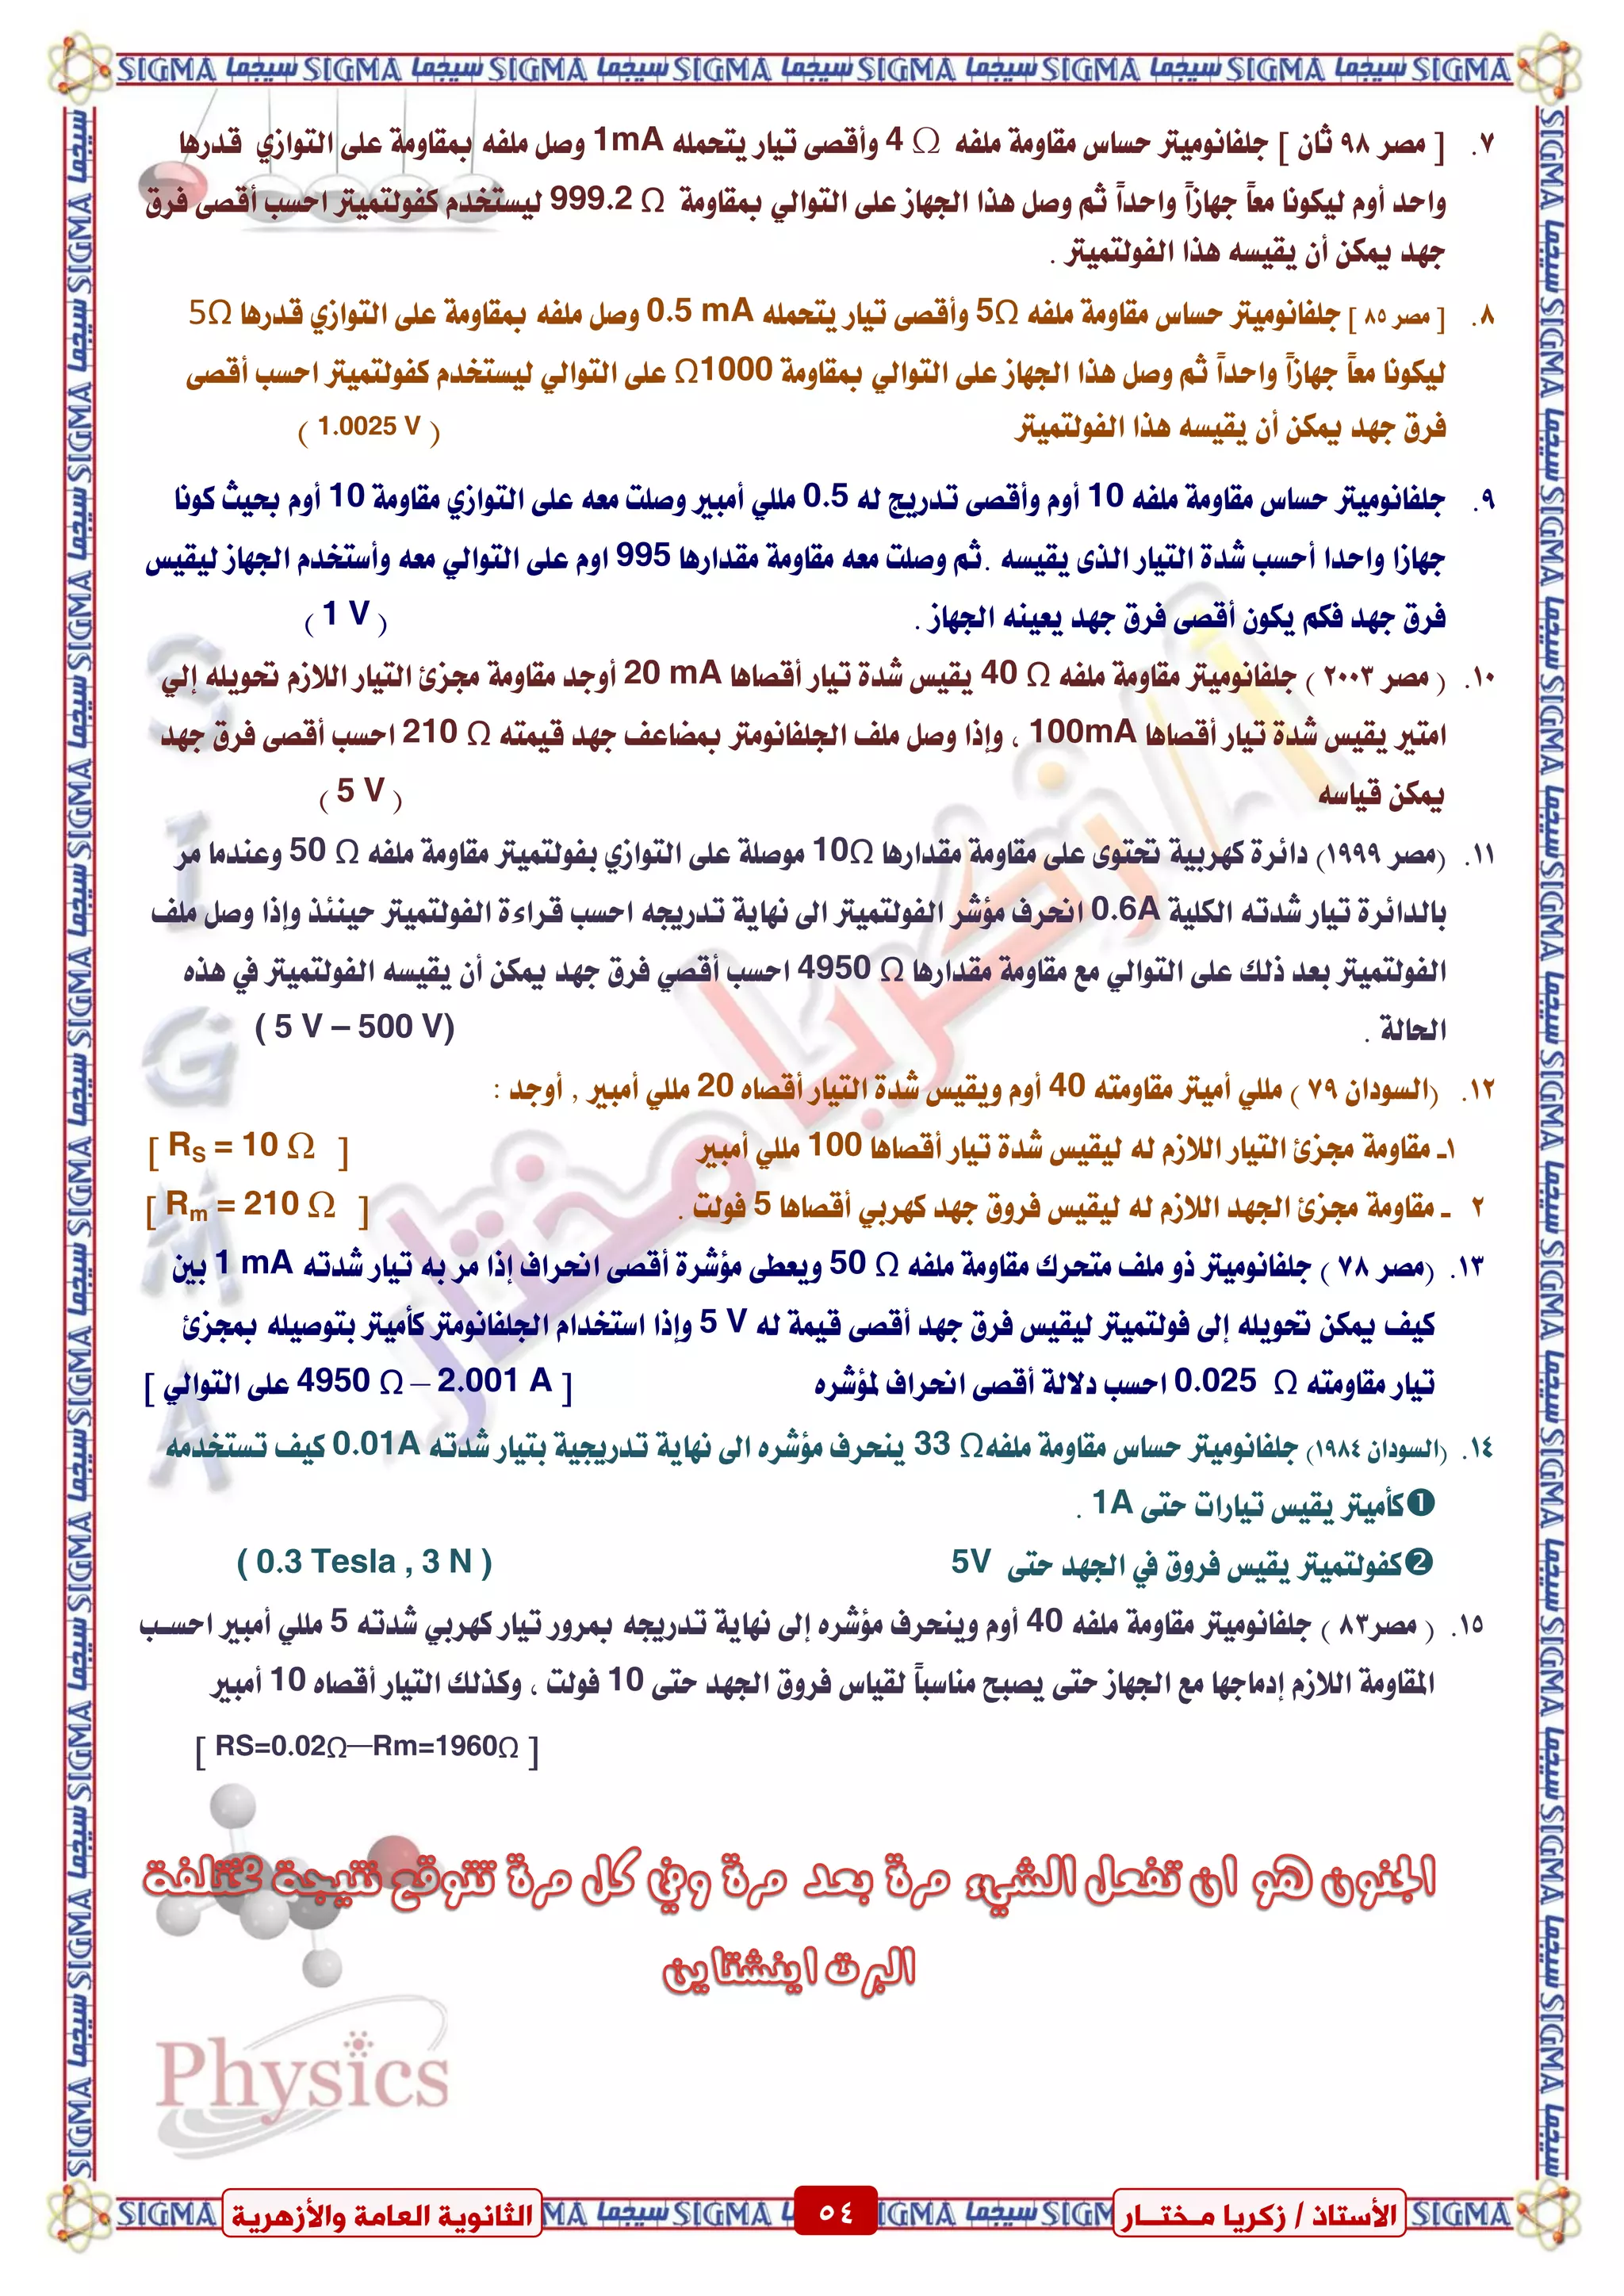 SIGMA سيجما SIGMA سيجما SIGMA سيجما SIGMA سيجما SIGMA سيجما SIGMA سيجما SIGMA سيجما SIGMA
٧. [ مصر ٩٨ ثان ] جلفانوميتر حساس مقاومة ملفه 4 Ω وأقصى تيار يتحمله 1mA وصل ملفه بمقاومة على التوازي قدرها
واحد أوم ليكونا معاً جهازاً واحداً ثم وصل هذا الجهاز على التوالي بمقاومة 999.2 Ω ليستخدم كفولتميتر احسب أقصى فرق
جهد يمكن أن يقيسه هذا الفولتميتر .
٨. [ مصر ٨٥ ] جلفانوميتر حساس مقاومة ملفه 5Ω وأقصى تيار يتحمله 0.5 mA وصل ملفه بمقاومة على التوازي قدرها 5Ω
ليكونا معاً جهازاً واحداً ثم وصل هذا الجهاز على التوالي بمقاومة 1000Ω على التوالي ليستخدم كفولتميتر احسب أقصى
فرق جهد يمكن أن يقيسه هذا الفولتميتر ( 1.0025 V )
٩. جلفانوميتر حساس مقاومة ملفه 10 أوم وأقصى تدريج له 0.5 مللي أمبير وصلت معه على التوازي مقاومة 10 أوم بحيث كونا
جهازا واحدا أحسب شدة التيار الذى يقيسه .ثم وصلت معه مقاومة مقدارها 995 اوم على التوالي معه وأستخدم الجهاز ليقيس
فرق جهد فكم يكون أقصى فرق جهد يعينه الجهاز . ( 1 V )
١٠. ( مصر ٢٠٠٣ ) جلفانوميتر مقاومة ملفه 40 Ω يقيس شدة تيار أقصاها 20 mA أوجد مقاومة مجزئ التيار اللازم تحويله إلي
امتير يقيس شدة تيار أقصاها 100mA ، وإذا وصل ملف الجلفانومتر بمضاعف جهد قيمته 210 Ω احسب أقصى فرق جهد
يمكن قياسه ( 5 V )
١١. (مصر ١٩٩٩) دائرة كهربية تحتوى على مقاومة مقدارها 10Ω موصلة على التوازي بفولتميتر مقاومة ملفه 50 Ω وعندما مر
بالدائرة تيار شدته الكلية 0.6A انحرف مؤشر الفولتميتر الى نهاية تدريجه احسب قراءة الفولتميتر حينئذ وإذا وصل ملف
الفولتميتر بعد ذلك على التوالي مع مقاومة مقدارها 4950 Ω احسب أقصي فرق جهد يمكن أن يقيسه الفولتميتر في هذه
الحالة . ( 5 V – 500 V)
١٢. (السودان ٧٩ ) مللي أميتر مقاومته 40 أوم ويقيس شدة التيار أقصاه 20 مللي أمبير , أوجد :
١ـ مقاومة مجزئ التيار اللازم له ليقيس شدة تيار أقصاها 100 مللي أمبير [ RS = 10 Ω ]
٢ ـ مقاومة مجزئ الجهد اللازم له ليقيس فروق جهد كهربي أقصاها 5 فولت . [ Rm = 210 Ω ]
١٣. (مصر ٧٨ ) جلفانوميتر ذو ملف متحرك مقاومة ملفه 50 Ω ويعطى مؤشرة أقصى انحراف إذا مر به تيار شدته 1 mA بين
كيف يمكن تحويله إلى فولتميتر ليقيس فرق جهد أقصى قيمة له 5 V وإذا استخدام الجلفانومتر كأميتر بتوصيله بمجزئ
تيار مقاومته 0.025 Ω احسب دلالة أقصى انحراف لمؤشره [ 4950 Ω – 2.001 A على التوالي ]
١٤. (السودان ١٩٨٤) جلفانوميتر حساس مقاومة ملفه 33 Ω ينحرف مؤشره الى نهاية تدريجية بتيار شدته 0.01A كيف تستخدمه
❶كأميتر يقيس تيارات حتى 1A .
❷كفولتميتر يقيس فروق في الجهد حتى 5V ( 0.3 Tesla , 3 N )
١٥. ( مصر٨٣ ) جلفانوميتر مقاومة ملفه 40 أوم وينحرف مؤشره إلى نهاية تدريجه بمرور تيار كهربي شدته 5 مللي أمبير احسب
المقاومة اللازم إدماجها مع الجهاز حتى يصبح مناسباً لقياس فروق الجهد حتى 10 فولت ، وكذلك التيار أقصاه 10 أمبير
[ RS=0.02Ω—Rm=1960Ω ]
الجنون هو ان تفعل الشيء مرة بعد مرة وفي كل مرة تتوقع نتيجة مختلفة
البرت اينشتاين
Physics
الأستاذ / زكريا مـختــار
٥٤
الثانوية العامة والأزهرية